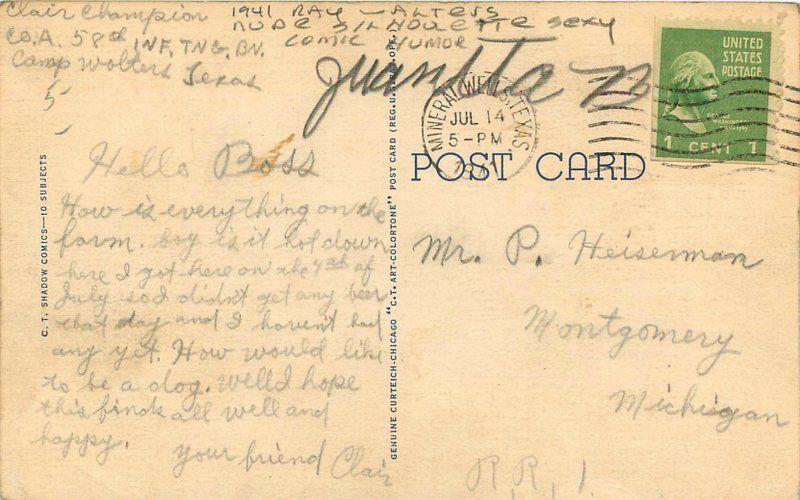 Clair Champion
Co. A. 58th INF. TNG. BN.
Camp Wolters Texas
5
1941 RAY — ALTESS
NUDE SILHOUETTE SEXY
COMIC HUMOR
Juanita
MINERAL WELLS, TEXAS
JUL 14
5-PM
1941
UNITED
STATES
POSTAGE
1 CENT 1
POST CARD
C. T. SHADOW COMICS—10 SUBJECTS
GENUINE CURTEICH-CHICAGO "C. T. ART-COLORTONE" POST CARD (REG. U. S. PAT. OFF.)
Hello Boss
How is everything on the
farm. boy is it hot down
here I got here on the 4th of
July so I didn't get any beer
that day and I haven't had
any yet. How would like
to be a dog. Well I hope
this finds all well and
happy.
Your friend Clair
Mr. P. Heiserman
Montgomery
Michigan
R. R. 1.